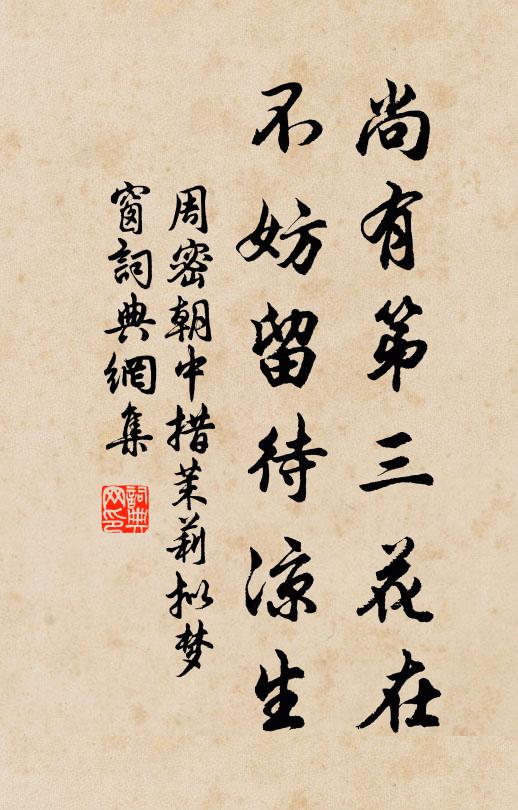 尚有第三花在
不妨留待凉生
周密朝中措茉莉拟梦
窗詞典網集
詞典网印